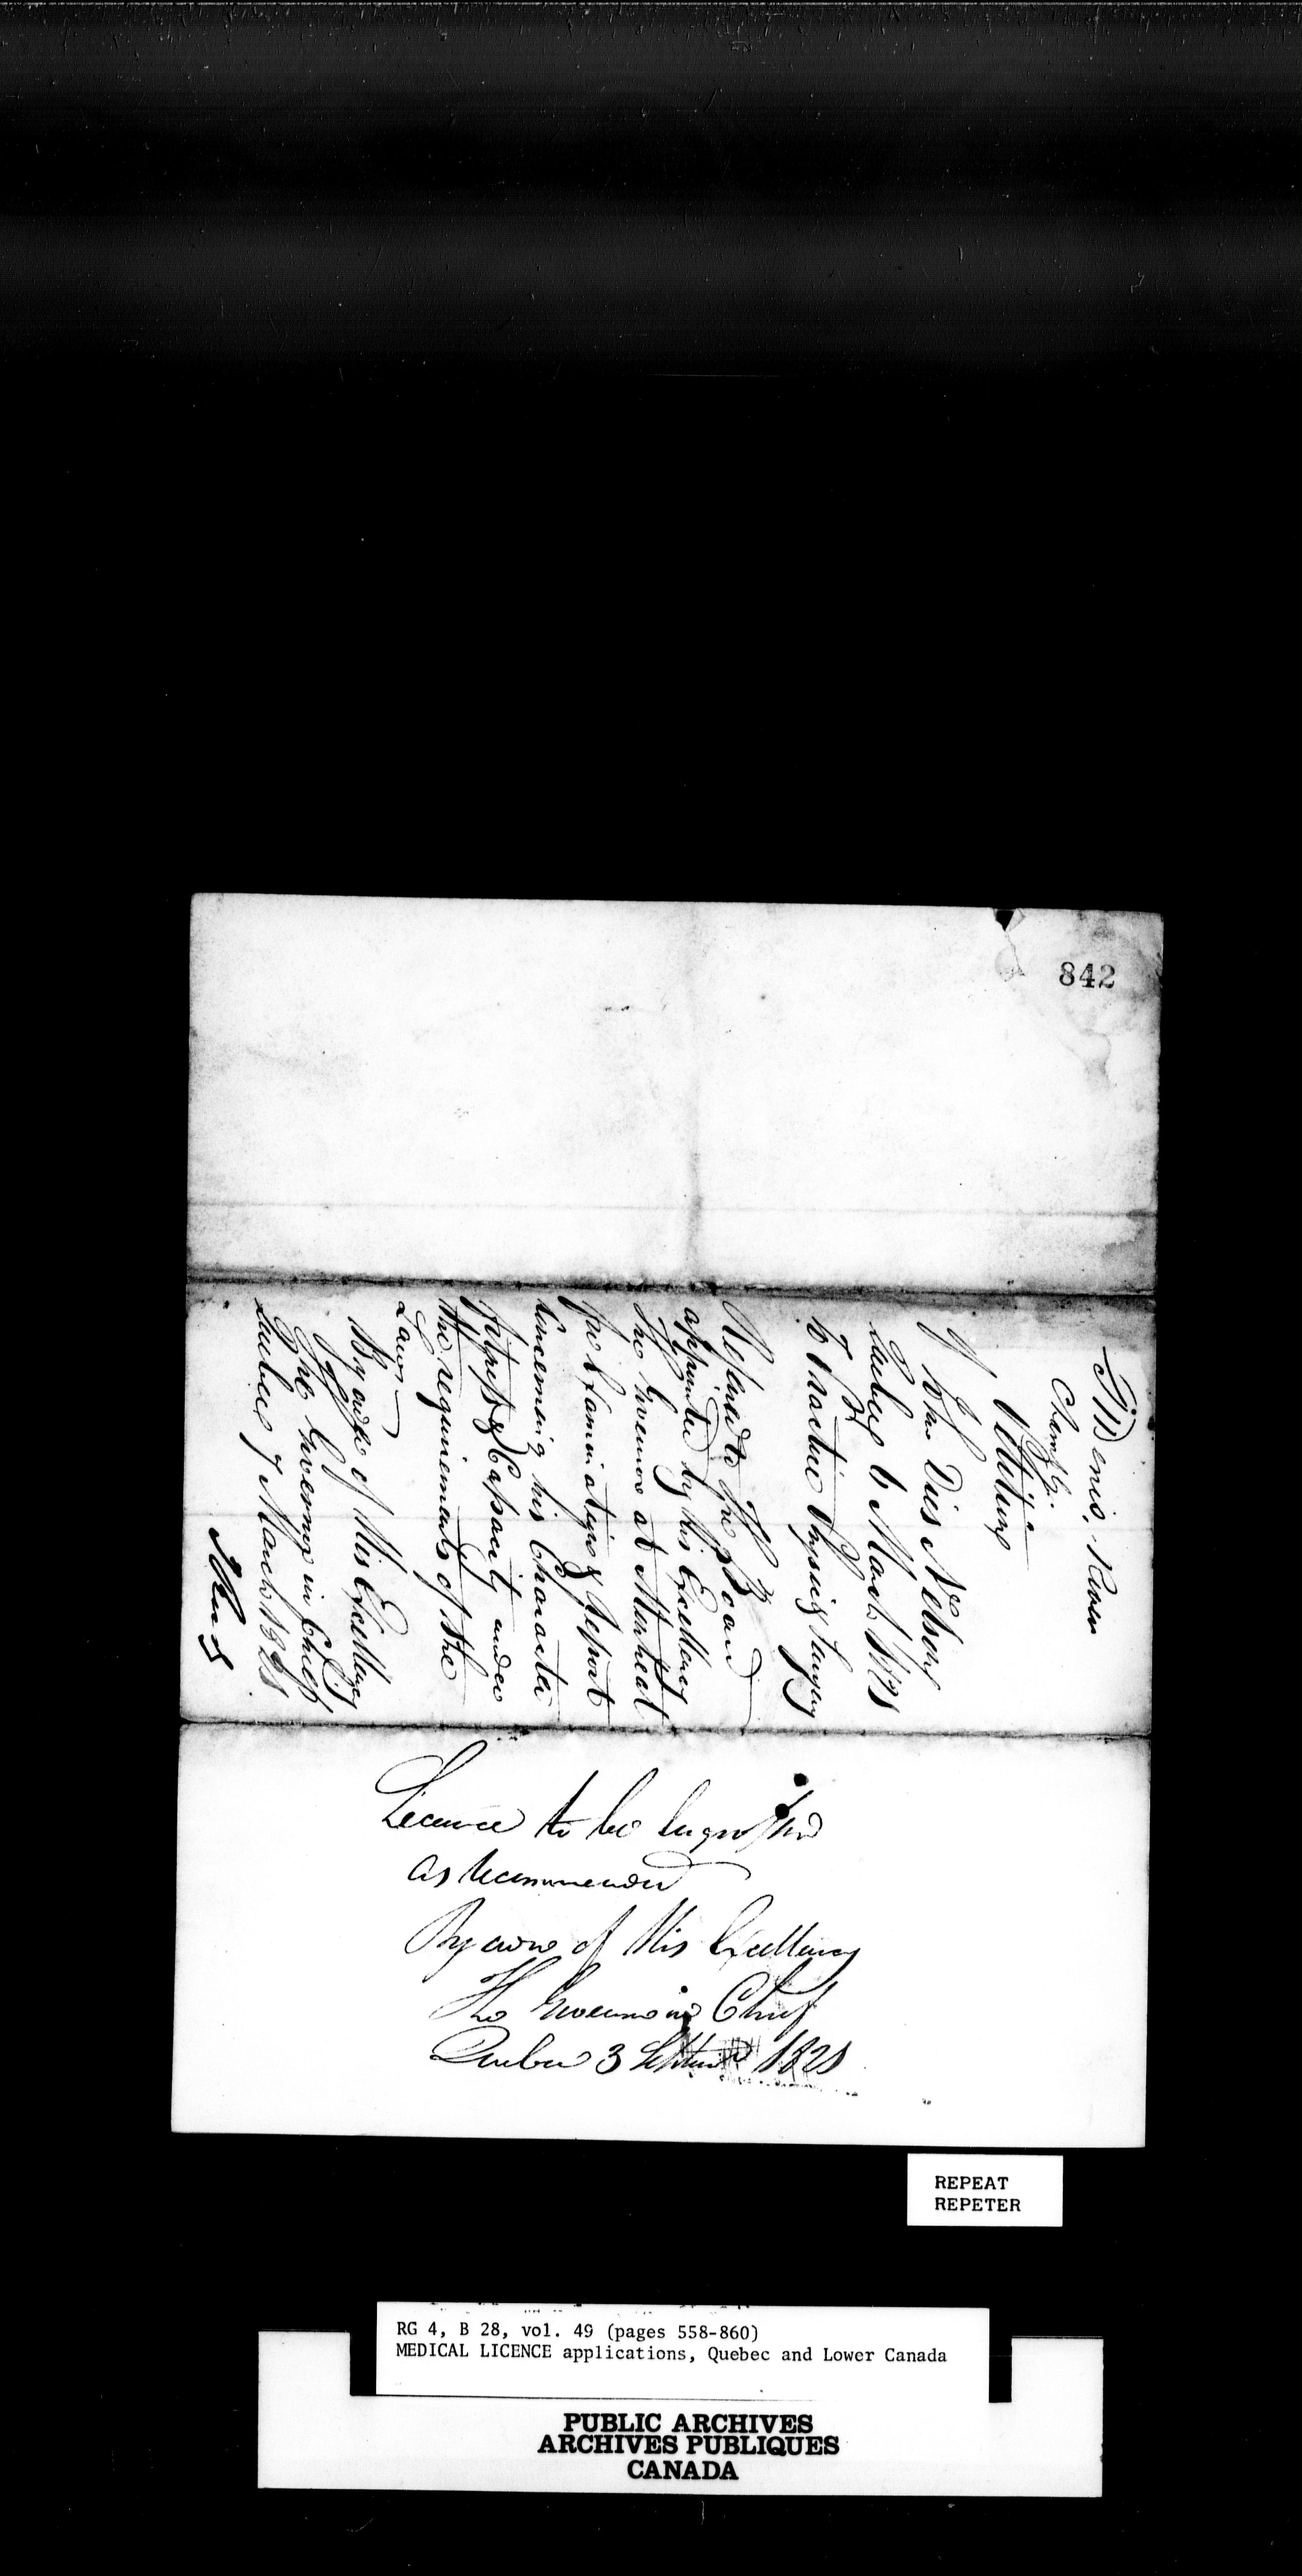 842
St Denis, River
Chambly.
Petition
of
John Dies Nelson
Quebec 6 March 1828
To Practice Physic & Surgery
Referred to the Board
appointed by His Excellency
the Governor at Montreal
for Examination & Report
Concerning his Character
Fitness & Capacity under
the requirements of the
Laws—
By order of His Excellency
The Governor in Chief
Quebec 7 March 1828
Licence to be Engrossed
as recommended
By order of His Excellency
The Governor in Chief
Quebec 3 1828
REPEAT
REPETER
RG 4, B 28, vol. 49 (pages 558-860)
MEDICAL LICENCE applications, Quebec and Lower Canada
PUBLIC ARCHIVES
ARCHIVES PUBLIQUES
CANADA